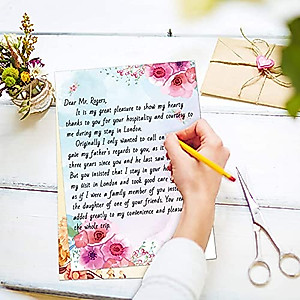 Dear Mr. Rogers,
It is my great pleasure to show my hearty
thanks to you for your hospitality and courtesy to
me during my stay in London.
Originally I only wanted to call on you
give my father's regards to you, as it
three years since you and he last saw
But you insisted that I stay in your ho
my visit in London and took good care
as if I were a family member of you
the daughter of one of your friends. You
added greatly to my convenience and pleas
the whole trip.